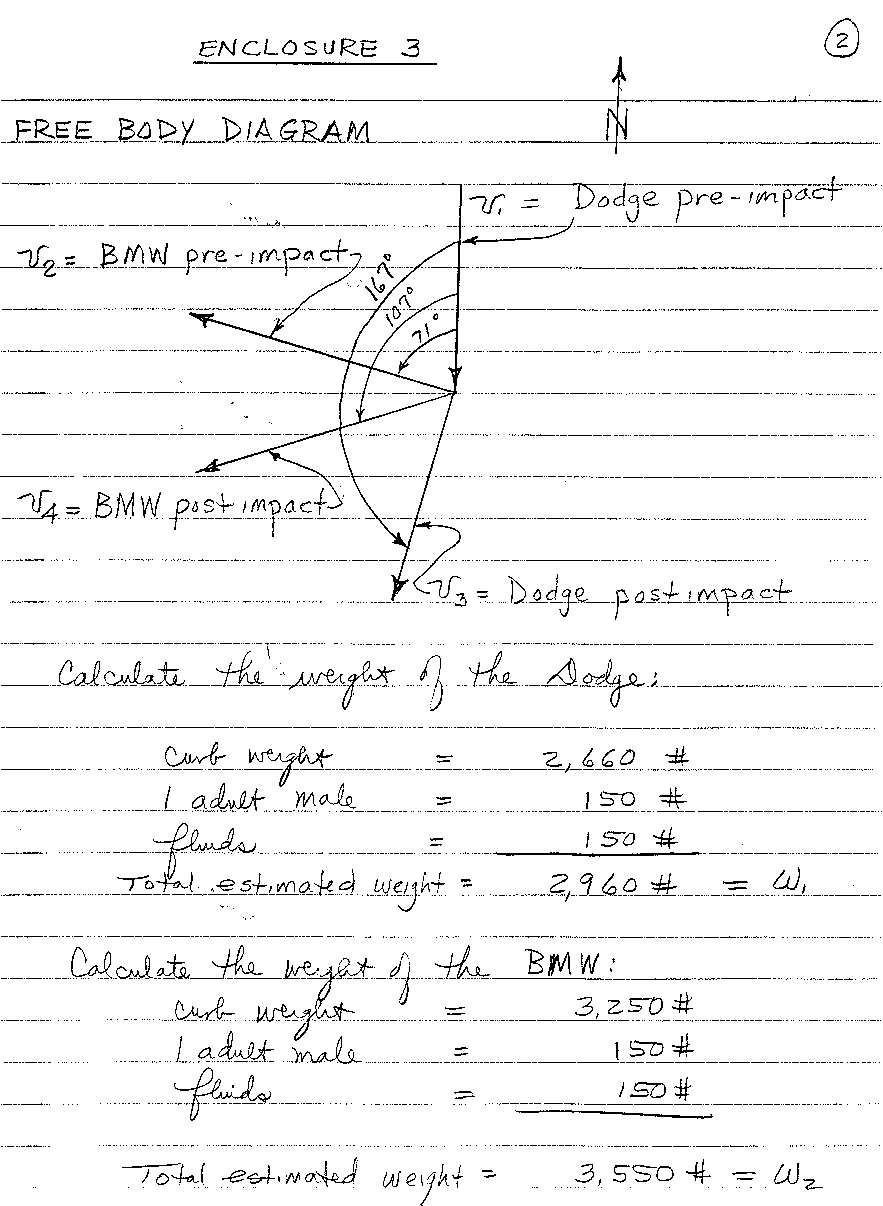 ENCLOSURE 3
2
N
FREE BODY DIAGRAM
v1 = Dodge pre-impact
v2 = BMW pre-impact
167°
107°
71°
v4 = BMW post impact
v3 = Dodge post impact
Calculate the weight of the Dodge:
curb weight = 2,660 #
1 adult male = 150 #
fluids = 150 #
Total estimated weight = 2,960 # = W1
Calculate the weight of the BMW:
curb weight = 3,250 #
1 adult male = 150 #
fluids = 150 #
Total estimated weight = 3,550 # = W2